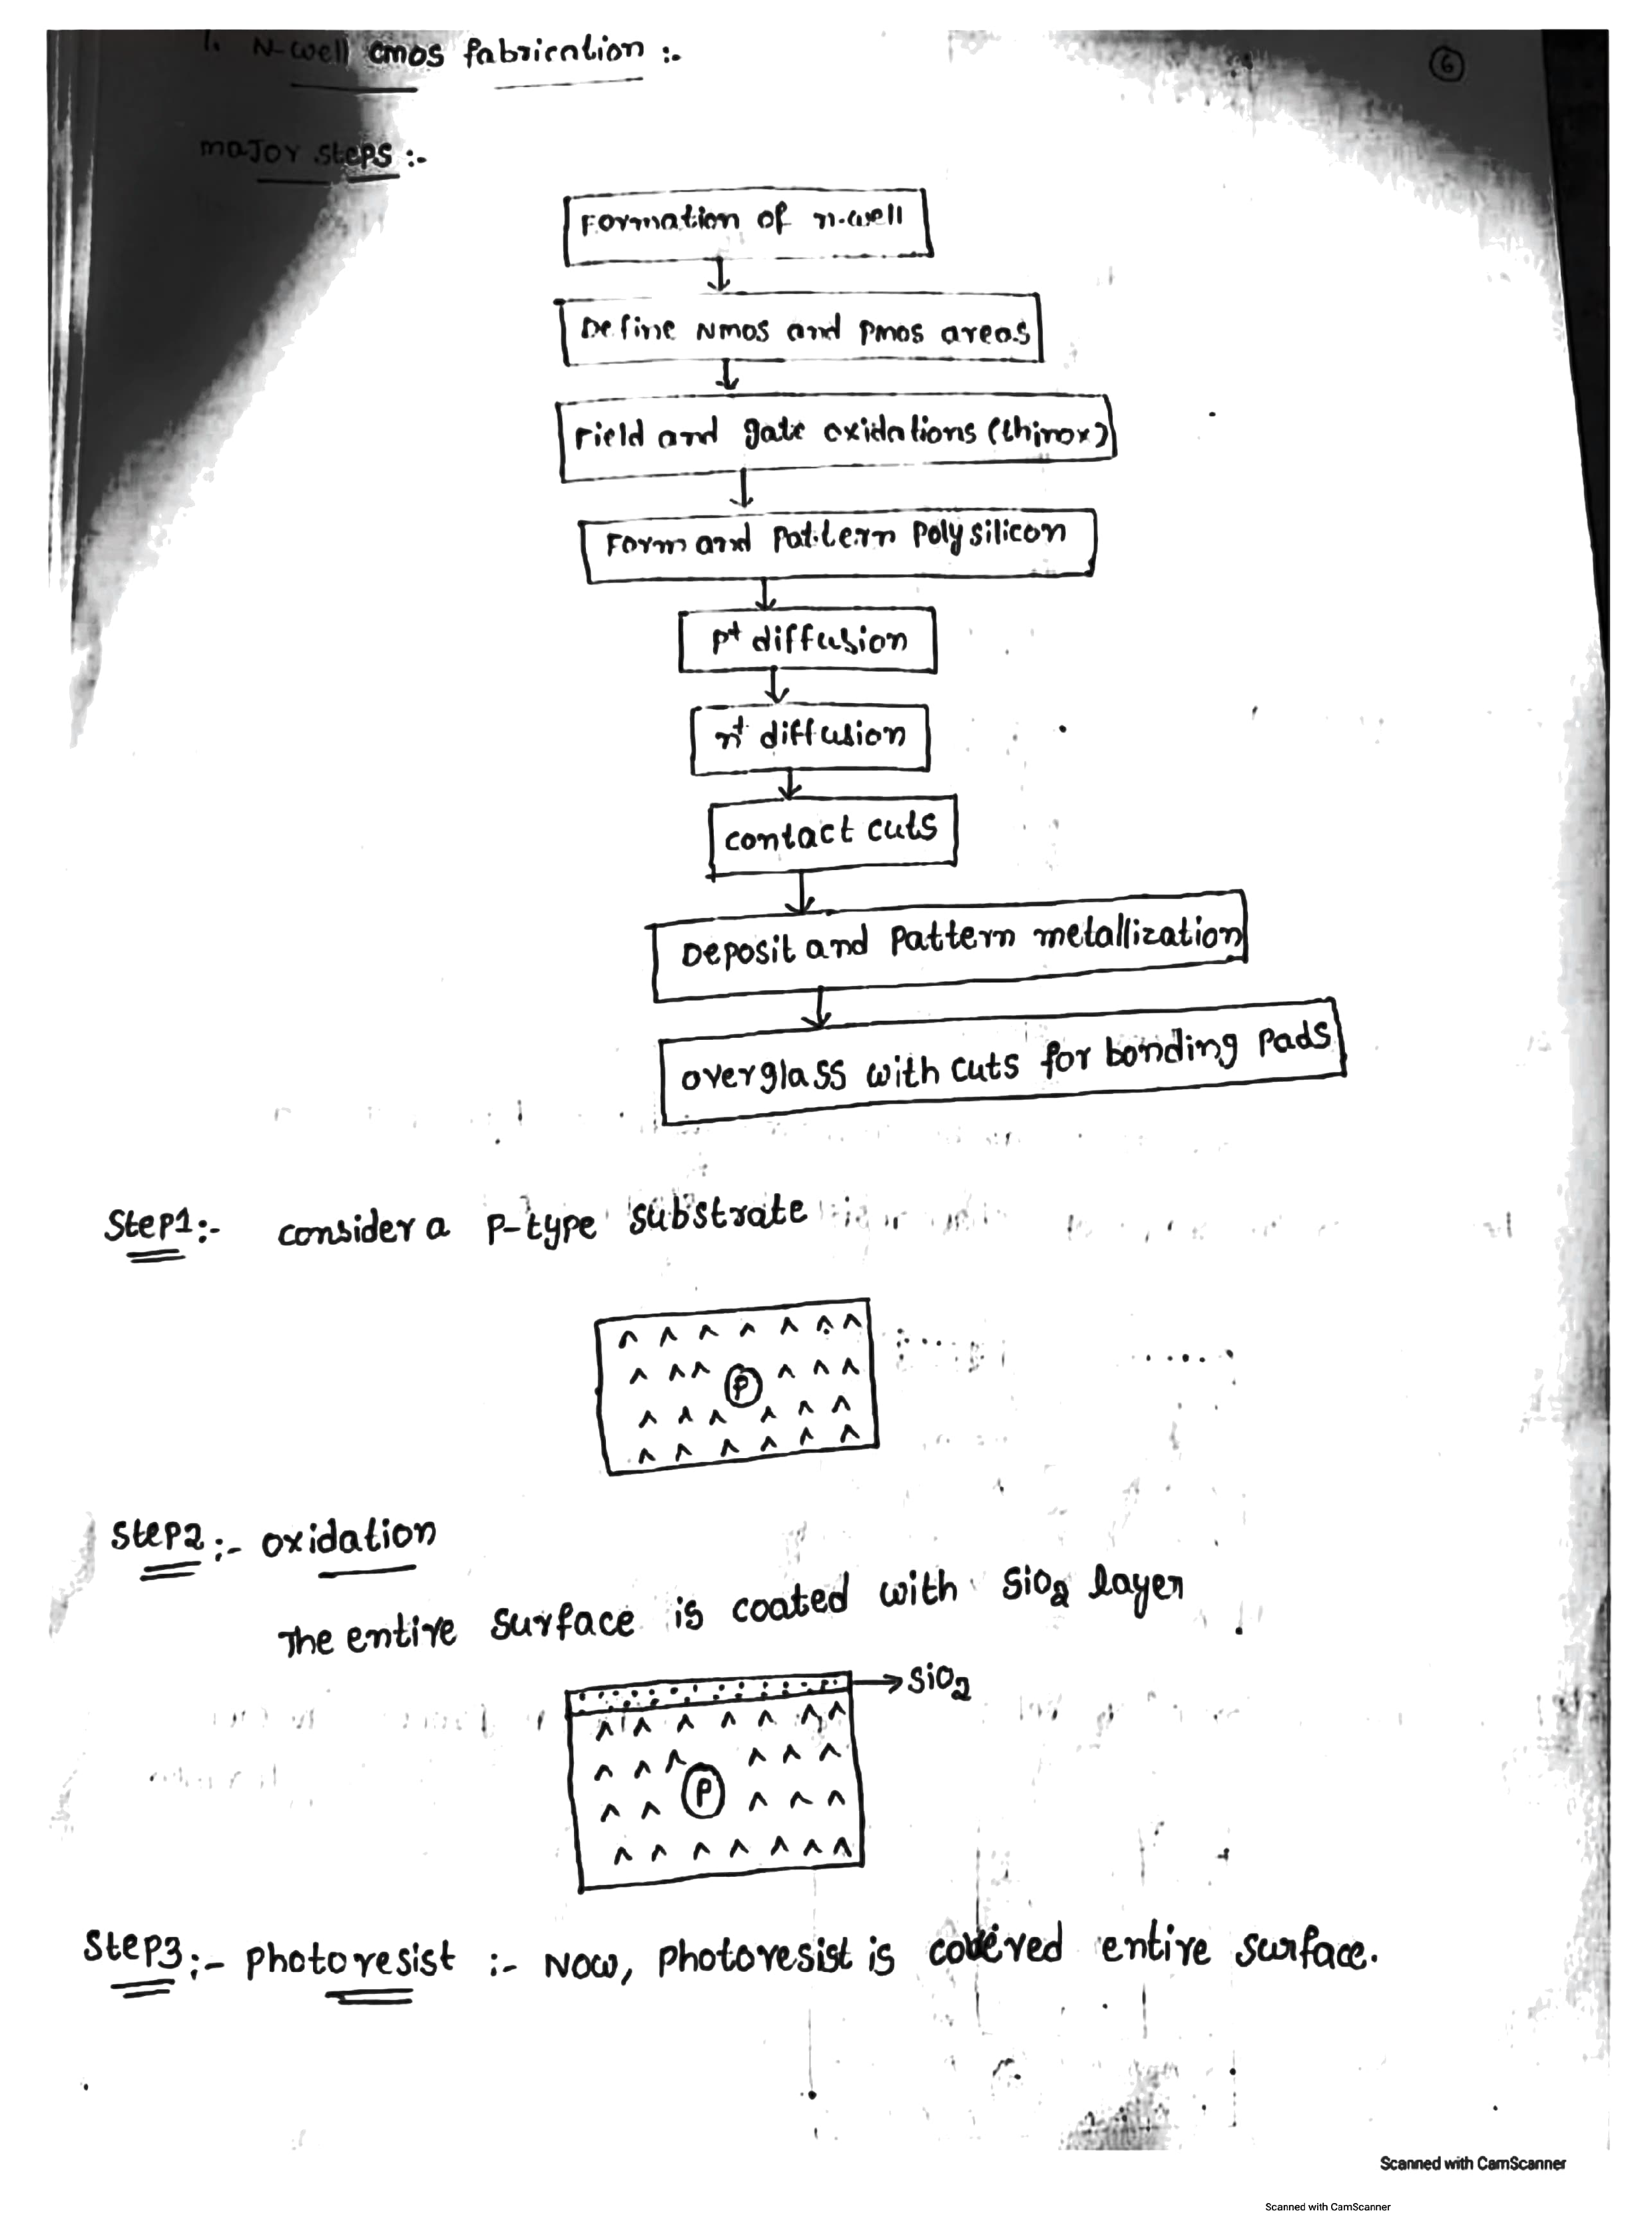 1. N-well cmos fabrication :-
6
major steps :-
Formation of n-well
Define Nmos and Pmos areas
Field and gate oxidations (thinox)
Form and Pattern Polysilicon
P+ diffusion
n+ diffusion
contact cuts
Deposit and Pattern metallization
overglass with cuts for bonding Pads
Step1:- consider a P-type substrate
P
Step2:- oxidation
The entire surface is coated with SiO2 layer
SiO2
P
Step3:- Photoresist :- Now, Photoresist is covered entire surface.
Scanned with CamScanner
Scanned with CamScanner